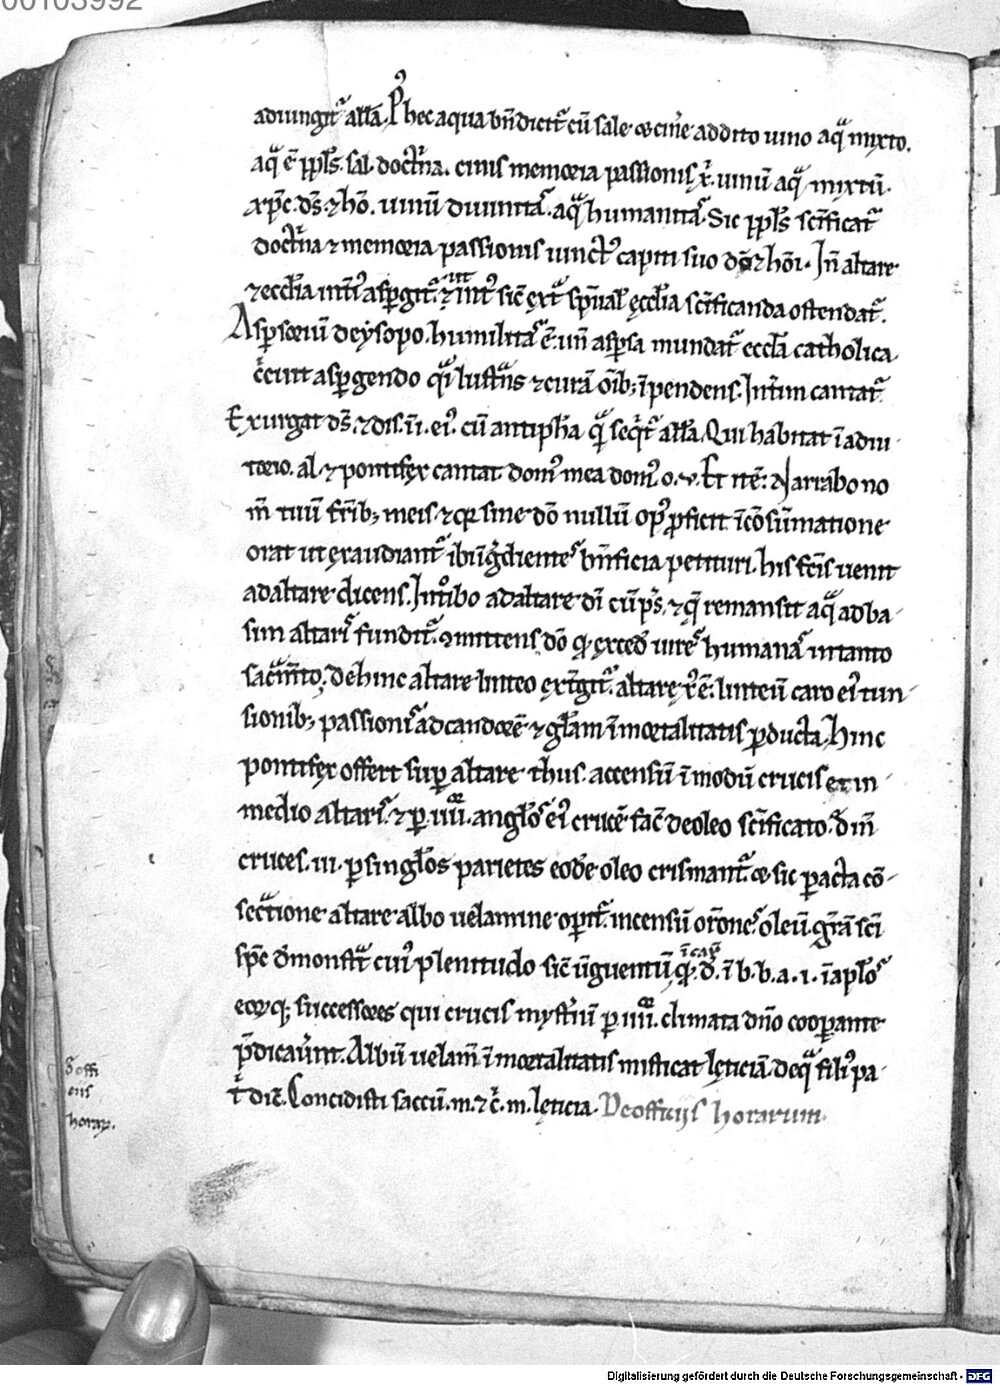 00103992
adiungit᷑ all̄a. P᷒ hec aqua bn̄dicit᷑ cū sale ⁊ cine᷑ addito uino aqͣ mixto.
aqͣ ē ppl̄s. sal doct̄na. cinis memoria passionis x᷑. uinū aqͣ mixtū.
xp̄c. ds̄. ⁊ hō. uinū diuinitas. aqͣ humanitas. Sic ppl̄s sc̄ificat᷑
doct̄na ⁊ memoria passionis iunct᷒ capiti suo dō ⁊ hōi. In̄ altare
⁊ eccl̄ia int᷒ aspgit᷑. ut int᷒ sic̄ ext᷑ sp̄ual᷑ ęccl̄ia sc̄ificanda ostendat᷑.
Aspsoriū de ysopo. humilitas ē. un̄ asp̄sa mundat᷑ eccl̄a catholica
c̄cuit aspgendo qͣsi lustn̄s ⁊ curā oīb; īpendens. Int̄im cantat᷑
Exurgat ds̄. ⁊ dis. i. ei᷒. cū antiph̄a q̄ seqt᷑ all̄a. Qui habitat ī adiu
torio. al. ⁊ pontifex cantat. dom᷒ mea dom᷒. o. v. Et itē: Narrabo no
m̄ tuū fr̄ib; meis. ⁊ qr sine dō nullū op᷒ pficit ī cōsūmatione
orat ut exaudiant᷑ ibi ingredientes bn̄ficia petituri. his fc̄is uenit
ad altare dicens. Int᷑oibo ad altare dī cū ps̄. ⁊ q̄ remansit aqͣ ad ba
sim altaris fundit᷑. ꝯmittens dō qr exced̄ uires humanas in tanto
sac̄mto. dehinc altare linteo ext᷑git᷑. altare x᷑ ē. linteū caro ei᷒ tun
sionib; passionis ad candorē ⁊ gl̄am īmortalitatis pducta. hinc
pontifex offert sup altare thus accensū ī modū crucis et in
medio altaris. ⁊ p iiii. anglos ei᷒ crucē fac̄ de oleo sc̄ificato. d̄ m̄
cruces. iii. p singl̄os parietes eodē oleo crismant᷑. ⁊ sic pacta cō
secͣtione altare albo uelamine opit᷑. incensū or̄ones. oleū. gr̄a sc̄i
sp̄c demonst᷑ cui᷒ plenitudo sic̄ ūguentū q̇. d̄. ī b. b. a. i. ī apl̄os
eorꝙ; successores qui crucis myst̄iū p iiii. climata dn̄o coopante
p̄dicau̇nt. Albū uelam̄ īmortalitatis mistificat lęticiā. de qͣ fili᷒ pa
t᷑ dic̄. Concidisti saccū. m. ⁊ c̄. m. lęticia. De officijs horarum.
De offi
ciis
horaꝝ.
Digitalisierung gefördert durch die Deutsche Forschungsgemeinschaft - DFG